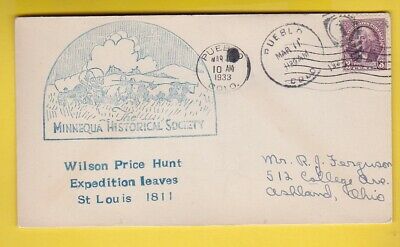 PUEBLO
MAR
10 AM
1933
COLO.
PUEBLO
MAR 11
COLO.
The
MINNEQUA HISTORICAL SOCIETY
Wilson Price Hunt
Expedition leaves
St Louis 1811
Mr. R. J. Ferguson
512 College Ave.
Ashland, Ohio